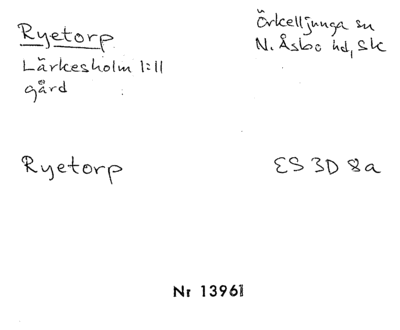 Ryetorp
Lärkesholm 1:11
gård
Örkelljunga sn
N. Åsbo hd, Sk
Ryetorp
ES 3D 8a
Nr 13961